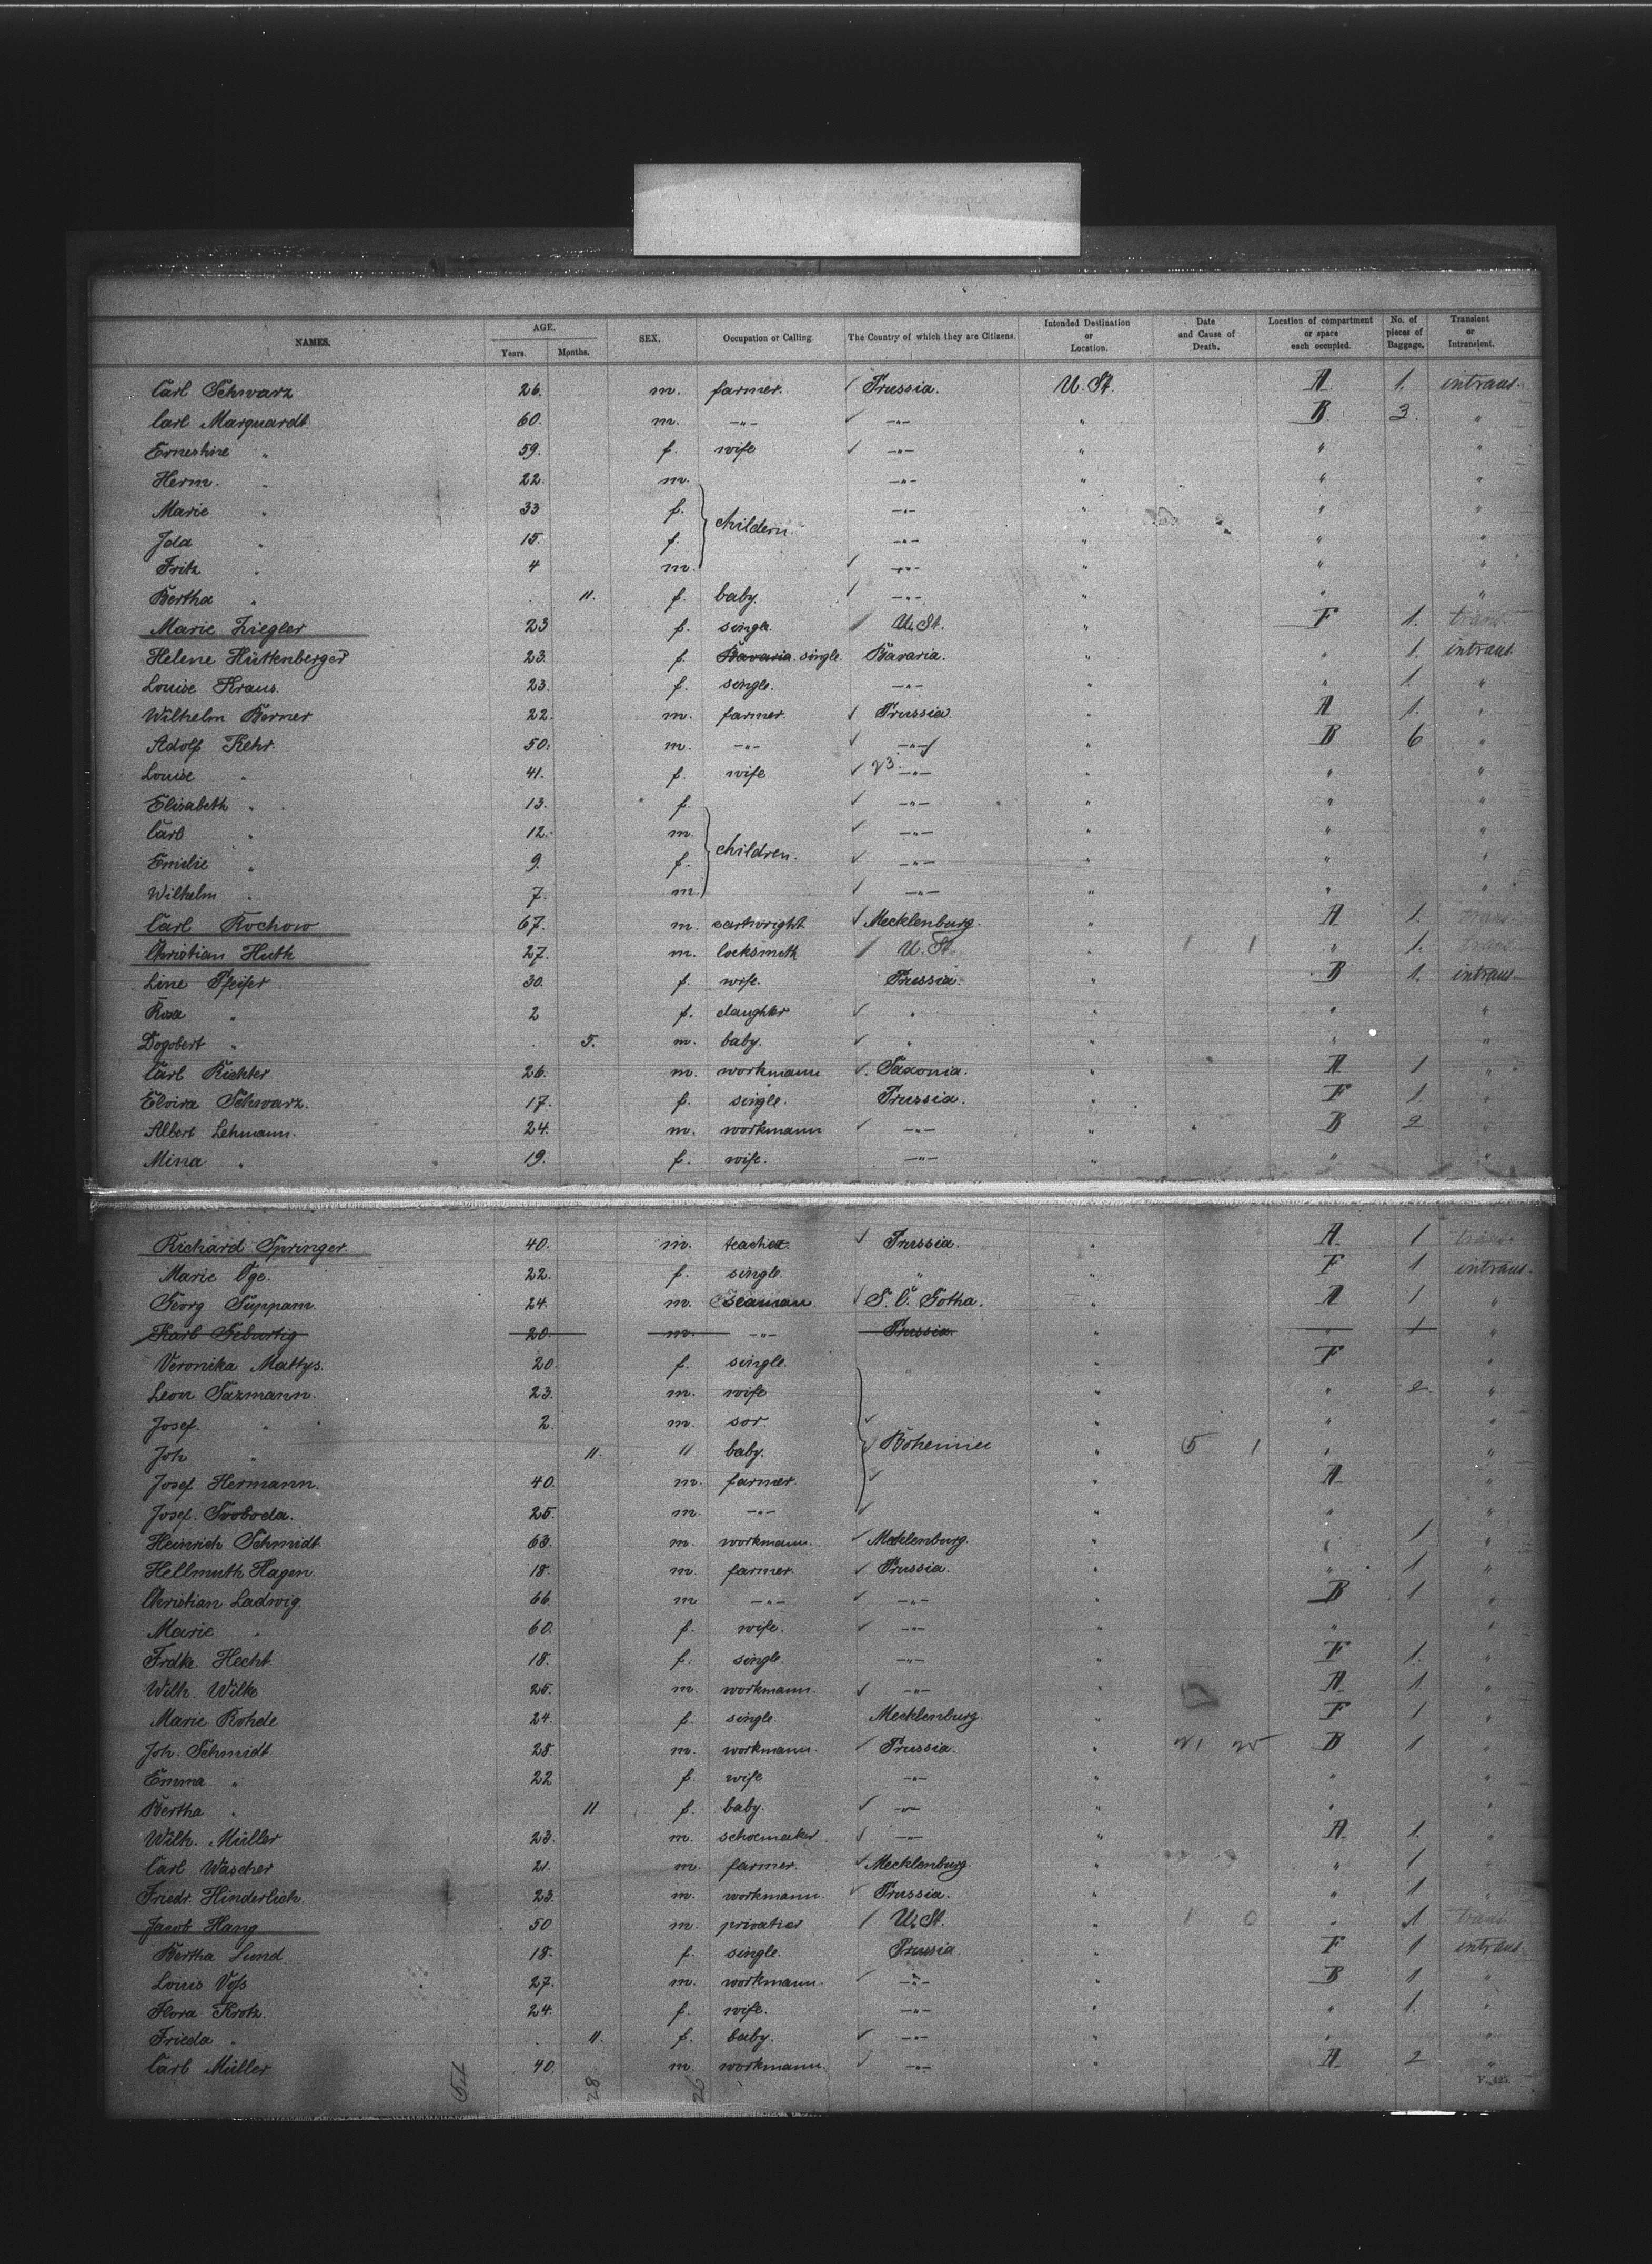 NAMES. AGE. Years. Months. SEX. Occupation or Calling. The Country of which they are Citizens. Intended Destination or Location. Date and Cause of Death. Location of compartment or space each occupied. No. of pieces of Baggage. Transient or Intransient.
Carl Schwarz 26. m. farmer. Prussia. U. St. A 1. intrans.
Carl Marquardt. 60. m. -"- -"- " B 3. "
Ernestine " 59. f. wife -"- " " "
Herm. " 22. m. -"- " " "
Marie " 33 f. childern. -"- " " "
Ida " 15. f. -"- " " "
Fritz " 4 m. -"- " " "
Bertha " 11. f. baby. -"- " " "
Marie Ziegler 23 f. single U. St. " F 1. trans.
Helene Hüttenberger 23. f. Bavaria single. Bavaria. " " 1. intrans.
Louise Kraus. 23. f. single. -"- " " 1. "
Wilhelm Berner 22. m. farmer. Prussia " A 1. "
Adolf Kehr. 50. m. -"- -"- " B 6 "
Louise " 41. f. wife 23 -"- " " "
Elisabeth " 13. f. -"- " " "
Carl " 12. m. -"- " " "
Emilie " 9. f. children. -"- " " "
Wilhelm " 7. m. -"- " " "
Carl Rochow 67. m. cartwright Mecklenburg. " A 1. trans.
Christian Huth 27. m. locksmith U. St. " 1 1 " 1. trans.
Line Pfeifer 30. f. wife. Prussia. " B 1. intrans.
Rosa " 2 f. daughter " " " "
Dogobert " 5. m. baby. " " " "
Carl Richter 26. m. workmann Saxonia. " A 1 "
Elvira Schwarz. 17. f. single. Prussia. " F 1. "
Albert Lehmann. 24. m. workmann -"- " B 2 "
Mina " 19. f. wife. -"- " " "
Richard Springer. 40. m. teacher Prussia. " A 1 trans.
Marie Oge. 22. f. single. " " F 1 intrans.
Georg Suppam. 24. m. seaman S. C. Gotha. " A 1 "
Karl Geburtig 20. m. -"- Prussia. " " 1 "
Veronika Mattys. 20. f. single. " F "
Leon Sazmann. 23. m. wife " " 2 "
Josef. " 2. m. son. " " "
Joh " 11. " baby. Bohemia " 5 1 " "
Josef Hermann. 40. m. farmer. " A "
Josef. Svoboda. 25. m. -"- " " "
Heinrich Schmidt. 63. m. workmann. Mecklenburg. " " 1 "
Hellmuth Hagen. 18. m. farmer. Prussia. " " 1 "
Christian Ladwig. 66. m -"- -"- " B 1 "
Marie " 60. f. wife. -"- " " "
Frdke. Hecht. 18. f. single -"- " F 1. "
Wilh. Wilke 25. m. workmann. -"- " A 1 "
Marie Rohde 24. f. single. Mecklenburg. " F 1 "
Joh. Schmidt 28. m. workmann. Prussia. " B 1 "
Emma " 22 f. wife -"- " " "
Bertha " 11 f. baby. -"- " " "
Wilh. Müller 23. m. schoemaker. -"- " A. 1. "
Carl Wascher 21. m. farmer. Mecklenburg. " " 1 "
Friedr. Hinderlich. 23. m. workmann. Prussia. " " 1 "
Jacob Hang 50 m. privatier U. St. " 1 0 " 1 trans.
Bertha Lund 18. f. single. Prussia. F 1 intrans.
Louis Voß 27. m. workmann. -"- " B 1 "
Flora Krotz. 24. f. wife. -"- " " 1. "
Frieda " 11. f. baby. -"- " " "
Carl Müller 40. m. workmann. -"- " A 2 "
54 28 26
F. 425.